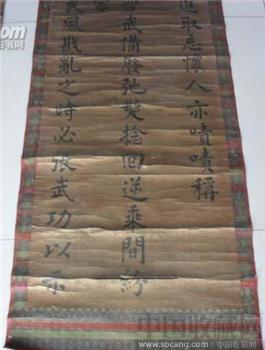 進取忘懷人亦嘖嘖稱
武備廢弛髮捻回逆乘間紛
民風戡亂之時必張武功以示
中国收藏网
www.socang.com 中国收藏网